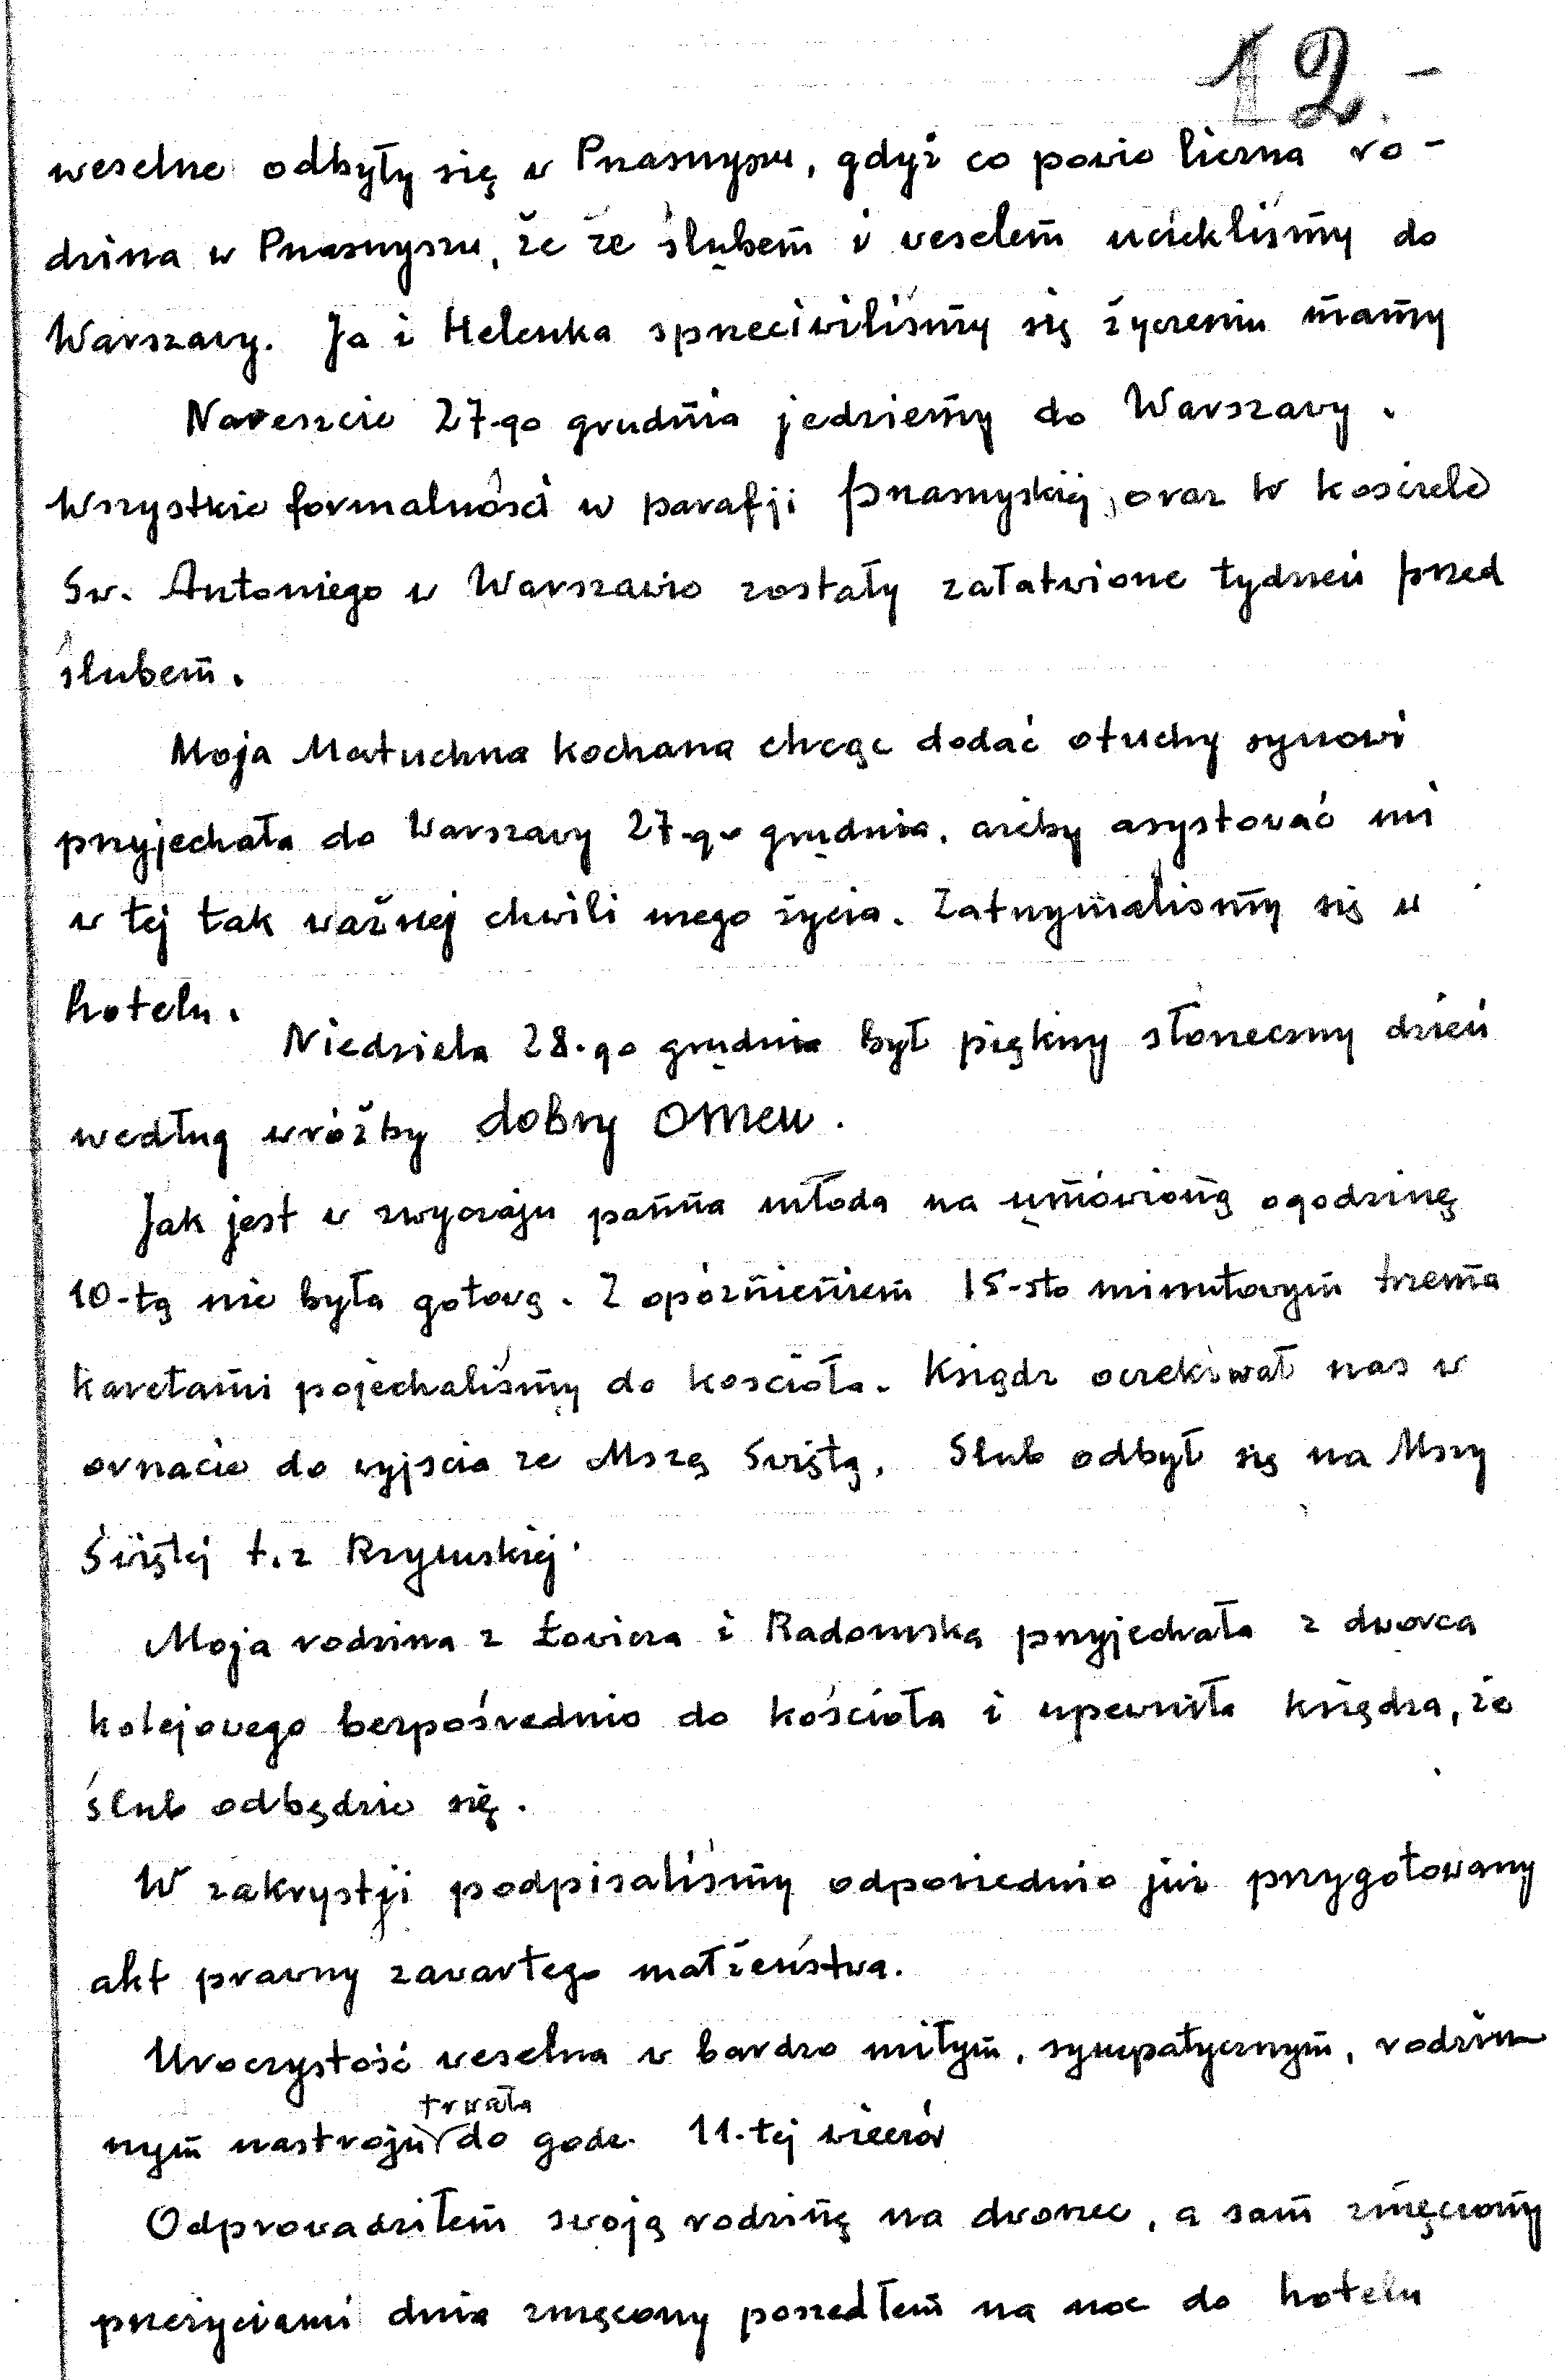 12.-
weselne odbyły się w Przasnyszu, gdyż co powie liczna ro-
dzina w Przasnyszu, że ze ślubem i weselem uciekliśmy do
Warszawy. Ja i Helenka sprzeciwiliśmy się życzeniu mamy
Nareszcie 27-go grudnia jedziemy do Warszawy.
Wszystkie formalności w parafji przasnyskiej, oraz w kosciele
Sw. Antoniego w Warszawie zostały załatwione tydzień przed
ślubem.
Moja Matuchna kochana chcąc dodać otuchy synowi
przyjechała do Warszawy 27-go grudnia, ażeby asystować mi
w tej tak ważnej chwili mego życia. Zatrzymaliśmy się w
hotelu.
Niedziela 28-go grudnia był piękny słoneczny dzień
według wróżby dobry omen.
Jak jest w zwyczaju panna młoda na umówioną ogodzinę
10-tą nie była gotową. Z opóźnieniem 15-sto minutowym trzema
karetami pojechaliśmy do kościoła. Ksiądz oczekiwał nas w
ornacie do wyjscia ze Mszą Swiętą. Slub odbył się na Mszy
Świętej t.z Rzymskiej.
Moja rodzina z Łowicza i Radomska przyjechała z dworca
kolejowego bezpośrednio do kościoła i upewniła księdza, że
ślub odbędzie się.
W zakrystji podpisaliśmy odpowiednio już przygotowany
akt prawny zawartego małżeństwa.
Uroczystość weselna w bardzo miłym, sympatycznym, rodzin
nym nastroju trwała do godz. 11-tej wieczór
Odprowadziłem swoją rodzinę na dworzec, a sam zmęczony
przeżyciami dnia zmęczony poszedłem na noc do hotelu